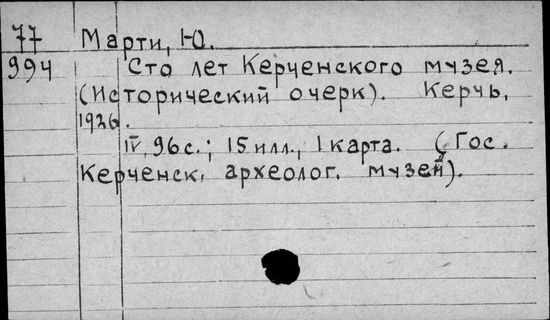 77 Марти, Ю.
994 Сто лет Керченского музея.
(Исторический очерк). Керчь,
1926.
IV, 96 с.; 15 илл., 1 карта. (Гос.
Керченск. археолог. музей).